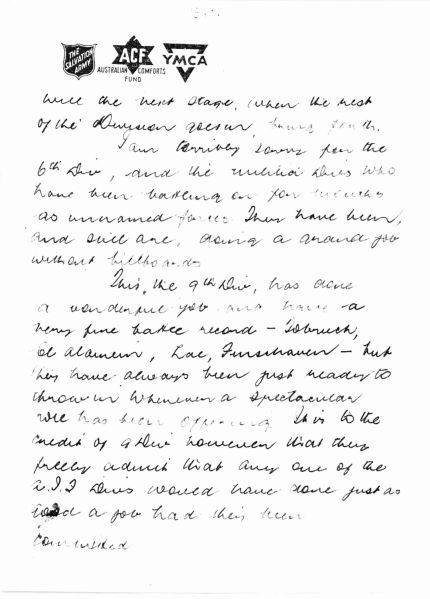 THE
SALVATION
ARMY
ACF
AUSTRALIAN COMFORTS
FUND
YMCA
will the next stage, when the rest
of the Division goes in, bring forth.
I am terribly sorry for the
6th Div, and the militia Divs who
have been battling on for months
as unnamed forces They have been,
and still are, doing a grand job
without billboards
This, the 9th Div, has done
a wonderful job and have a
very fine battle record – Tobruck,
El Alamein, Lae, Finschaven – but
they have always been just ready to
throw in whenever a spectacular
role has been It is to the
credit of 9 Div however that they
freely admit that any one of the
A.I.F Divs would have done just as
good a job had they been
committed